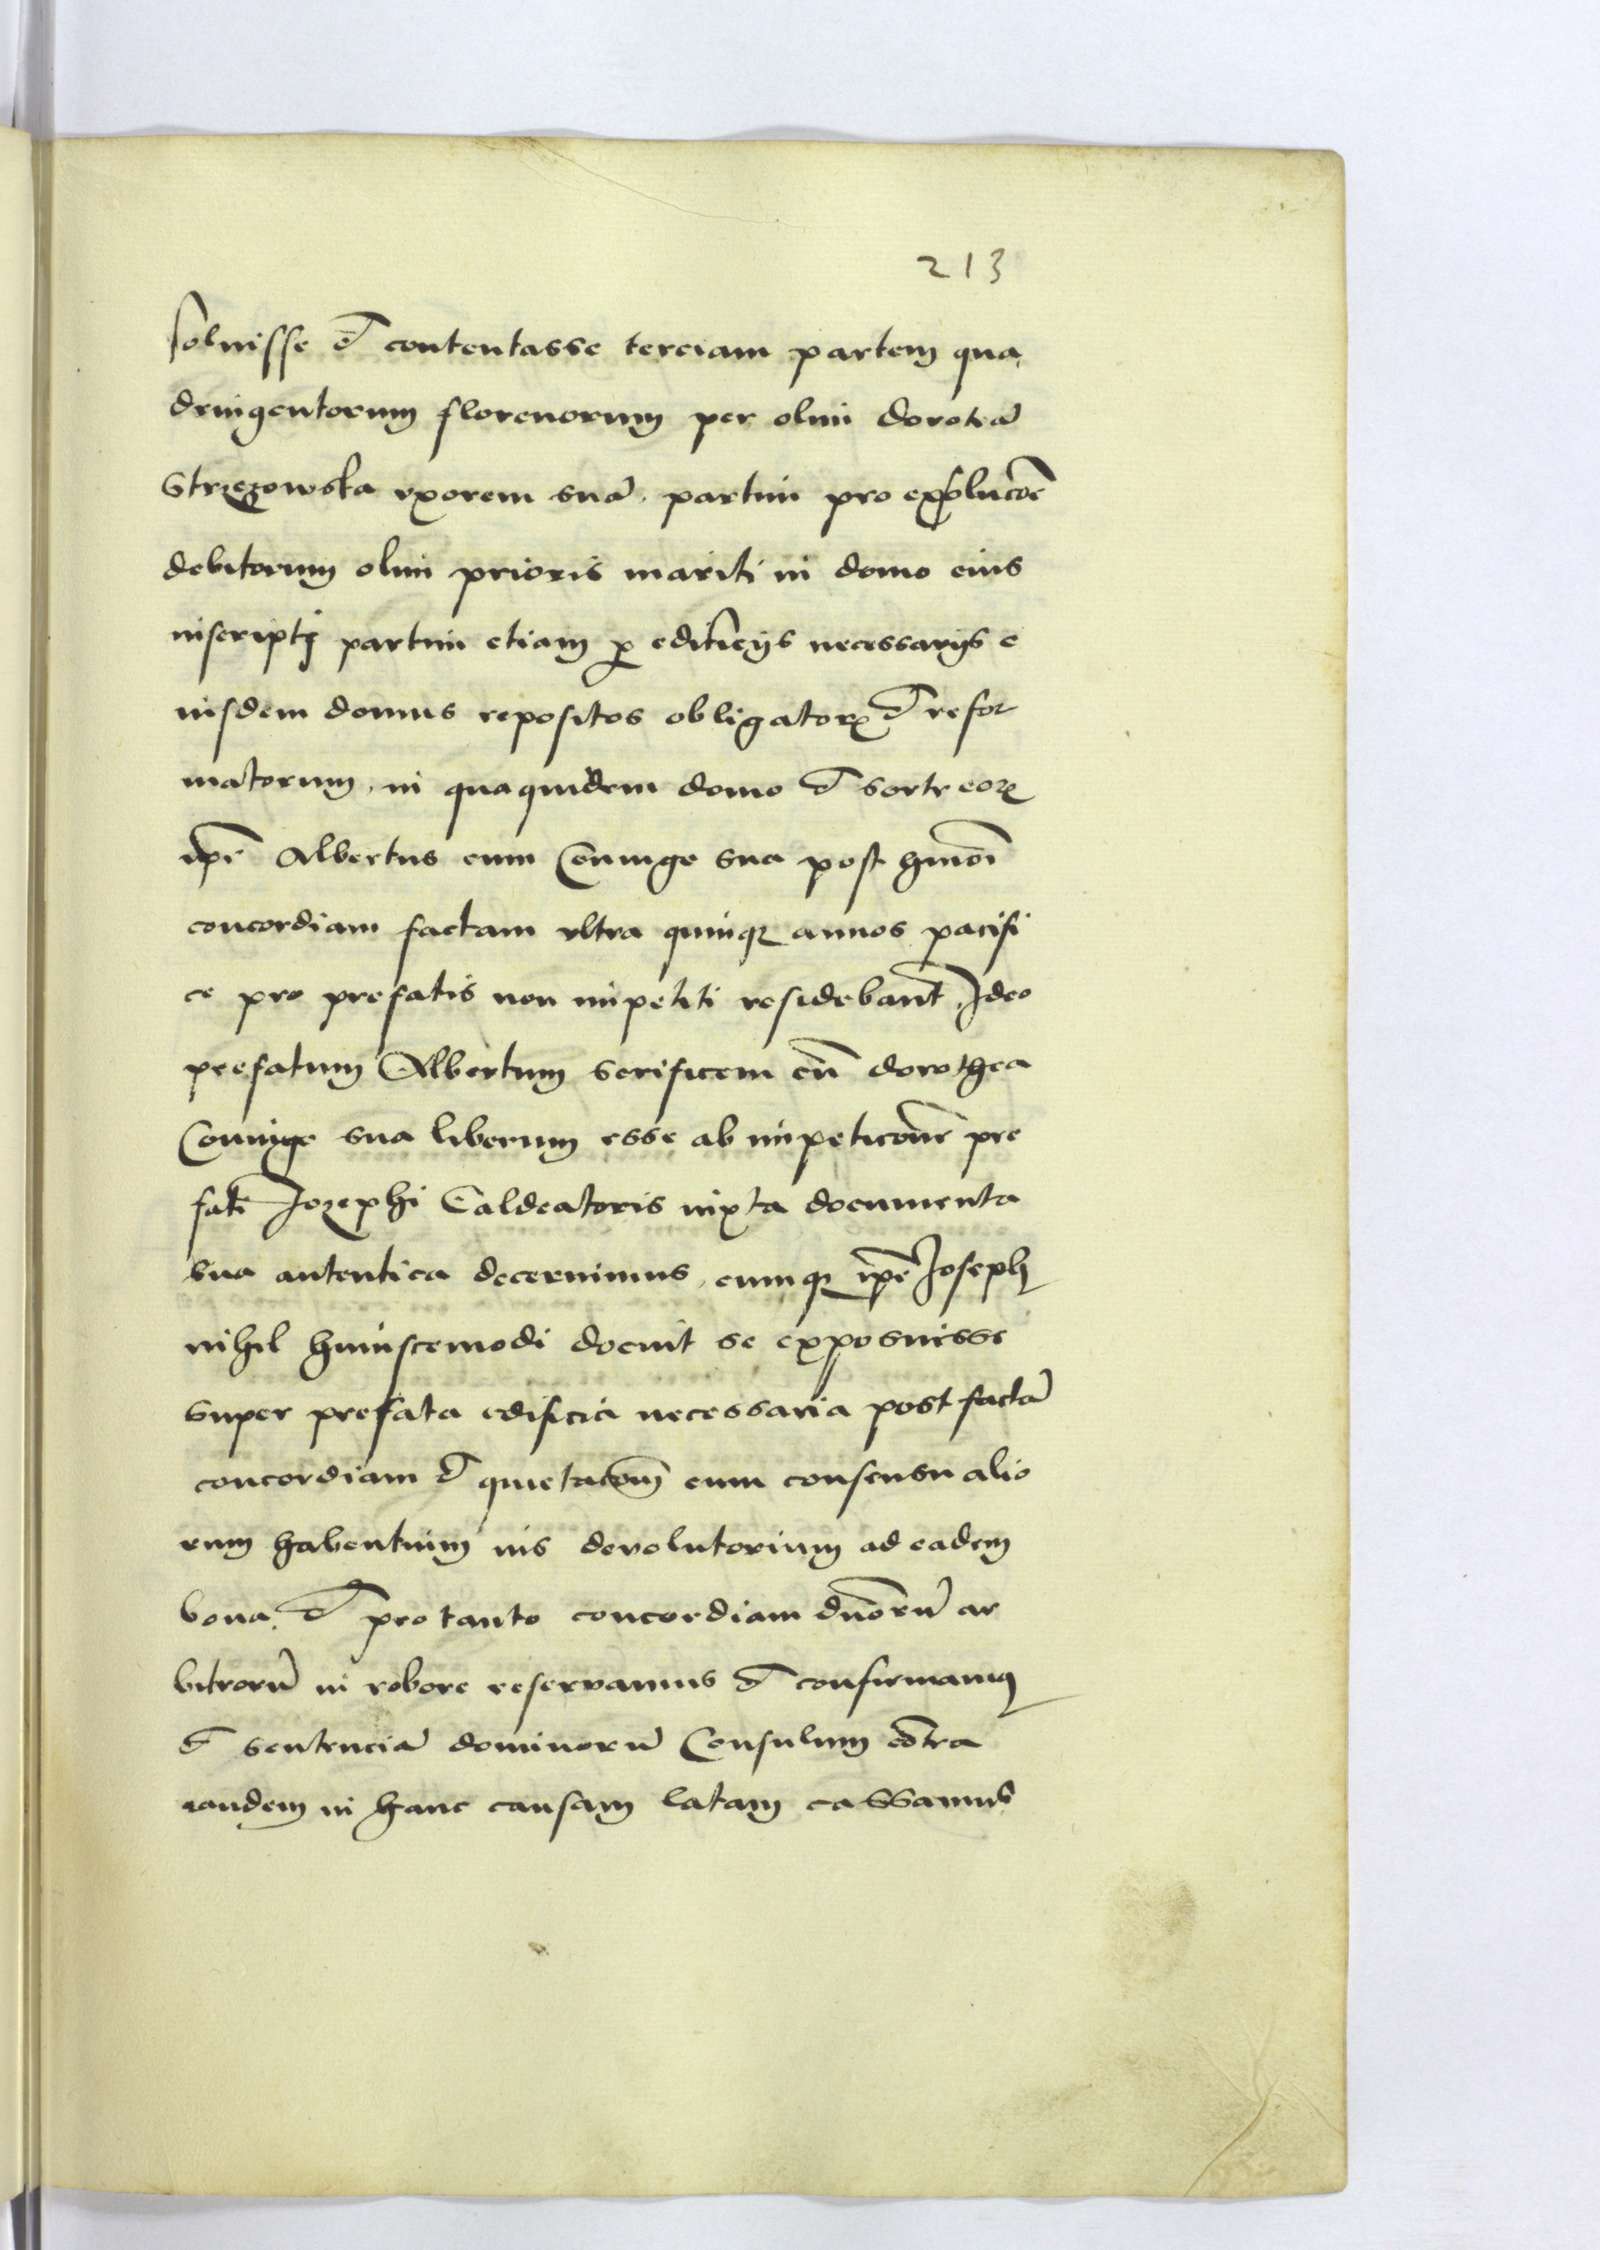 213
solvisse et contentasse terciam partem qua
dringentorum florenorum per olim doroteā
Strzezowska vxorem suā. partim pro exsolucōe
debitorum olim prioris mariti in domo eius
inscriptj partim etiam ꝑ edificijs necessarijs e
iusdem domus repositos obligatorꝝ et refor
matorum, in qua quidem domo et sorte eorꝝ
ip̄e Albertus cum Coniuge sua post hmōi
concordiam factam vltra quinqꝫ annos pacifi
ce pro prefatis non impetiti residebant, Ideo
prefatum Albertum serificem cū dorothea
Coniuge sua liberum esse ab impeticōne pre
fati Jozephi Caldeatoris iuxta documenta
sua autentica decernimus, cumqꝫ ip̄e Joseph
nihil huiuscemodi docuit se exposuisse
super prefata edificia necessaria post factā
concordiam et quietacōm cum consensu alio
rum habentium ius devolutorium ad eadem
bona. et pro tanto concordiam dn̄orū ar
bitrorū in robore reservamus et confirmamꝰ
et sentenciā dominorū Consulum cōtra
eandem in hanc causam latam cassamus